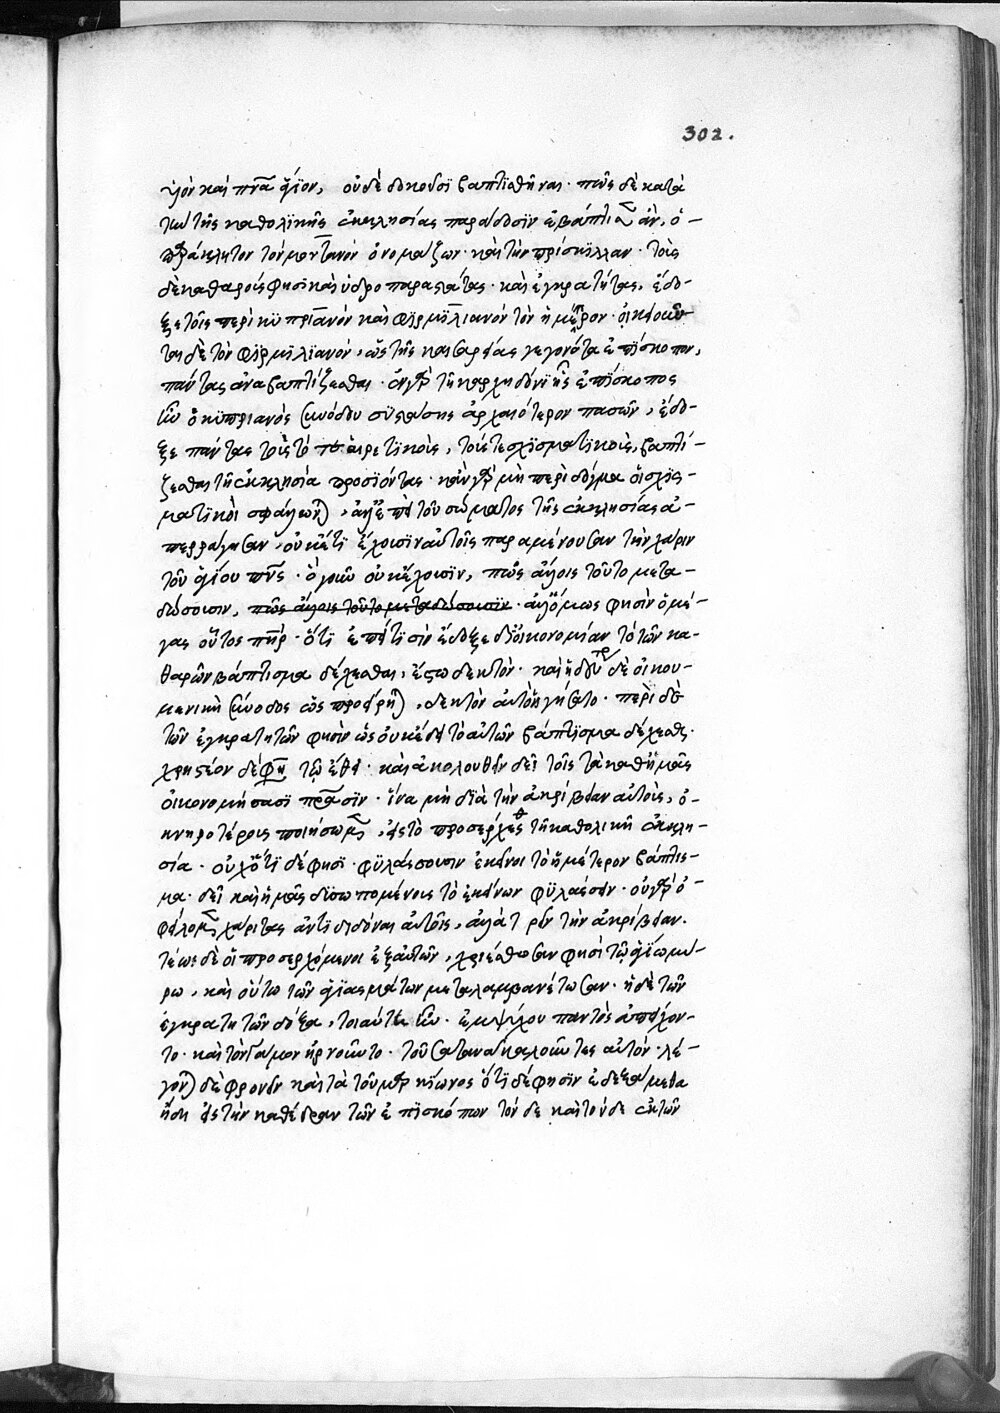 302.
υἱὸν καὶ πνα ἅγϊον, οὐδὲ δοκοῦσϊ βαπτϊσθῆναι· πῶς δὲ κατὰ
τὴν τῆς καθολϊκῆς ἐκκλησίας παράδοσϊν ἐβάπτισαν, ὁ
παράκλητον τὸν μοντανὸν ὀνομάζων· καὶ τὴν πρίσκϊλλαν· τοῖς
δὲ καθαροῖς φησὶ καὶ ὑδροπαραστάτας· καὶ ἐγκρατήτας, ἔδο-
ξε τοῖς περὶ κϋπριανὸν καὶ φϊρμϊλιανὸν τὸν ἡμέτερον·
δὲ τὸν φϊρμϊλϊανὸν, ὡς τῆς καισαρείας γεγονότα ἐπίσκοπον,
πάντας ἀναβαπτίζεσθαι· ἐν γὰρ τῇ καρχηδόνϊ ἧς ἐπίσκοπος
ἦν ὁ κϋπριανὸς συνόδου συστάσης ἀρχαιότερον πασῶν, ἔδο-
ξε πάντας τούς τε αἱρετϊκοὺς, τούς τε σχϊσματϊκοὺς, βαπτί-
ζεσθαι τῇ ἐκκλησία προσϊόντας· κἂν γὰρ μὴ περὶ δόγμα οἱ σχϊσ-
ματϊκοὶ σφάλων), ἀλλ' ἐπεὶ τοῦ σώματος τῆς ἐκκλησίας ἀ-
περράγησαν, οὐκέτϊ ἔχουσϊν αὐτοῖς παραμένουσαν τὴν χάριν
τοῦ ἁγίου πνς· ὃ γοῦν οὐκ ἔχουσϊν, πῶς ἄλλοις τοῦτο μετα-
δώσουσιν, πῶς ἄλλοις τοῦτο μεταδώσουσιν· ἀλλ' ὅμως φησὶν ὁ μέ-
γας οὗτος πηρ· ὅτϊ ἐπεί τϊσὶν ἔδοξε δι' οἰκονομίαν τὸ τῶν κα-
θαρῶν βάπτισμα δέχεσθαι, ἔστω δεκτόν· καὶ ἡ δευτέρα δὲ οἰκου-
μενικὴ σύνοδος ὡς προείρη), δεκτὸν αὐτὸ ἡγήσατο· περὶ δὲ
τῶν ἐγκρατητῶν φησὶν ὡς οὐκ ἔδει τὸ αὐτῶν βάπτϊσμα δέχεσθ·
χρηστέον δέ φη τῷ ἔθει· καὶ ἀκολουθεῖν δεῖ τοῖς τὰ καθ' ἡμᾶς
οἰκονομήσασϊ πρασϊν· ἵνα μὴ δϊὰ τὴν ἀκρίβειαν αὐτοὺς, ὀ-
κνηροτέρους ποιήσωμεν, εἰς τὸ προσέρχεσθ τῇ καθολικῇ ἐκκλη-
σία· οὐχ ὅτϊ δέ φησϊ· φϋλάσσουσιν ἐκεῖνοι τὸ ἡμέτερον βάπτισ-
μα· δεῖ καὶ ἡμᾶς δϋσωπουμένους τὸ ἐκείνων φϋλάσσειν· οὐ γὰρ ὀ-
φείλομεν χάριτας ἀντϊδιδόναι αὐτοῖς, ἀλλὰ τηρεῖν τὴν ἀκρίβειαν.
τέως δὲ οἱ προσερχόμενοι ἐξ αὐτῶν, χρϊέσθωσαν φησὶ τῷ ἁγίω μύ-
ρω, καὶ οὕτω τῶν ἁγϊασμάτων μεταλαμβανέτωσαν· ἡ δὲ τῶν
ἐγκρατητῶν δόξα, τοιαύτη ἦν· ἐμψύχου παντὸς ἀπείχον-
το· καὶ τὸν γάμον ἠρνοῦντο· τοῦ σατανᾶ καλοῦντες αὐτόν· λέ-
γον) δὲ φρονεῖν καὶ τὰ τοῦ μαρκίωνος ὅτϊ δέ φησϊν ἐδεξάμεθα
ἤδη εἰς τὴν καθέδραν τῶν ἐπϊσκόπων τόν δε καὶ τόνδε ἐκ τῶν